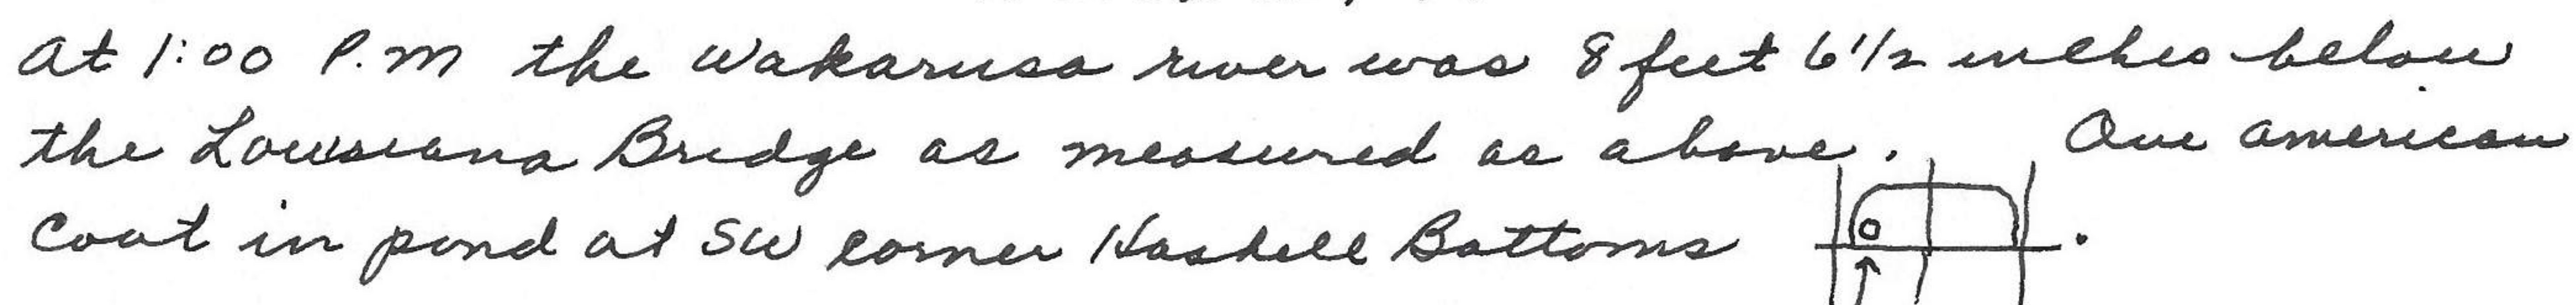 at 1:00 P.M the Wakarusa river was 8 feet 6 1/2 inches below
the Louisiana Bridge as measured as above. One american
Coot in pond at SW corner Haskell Bottoms .